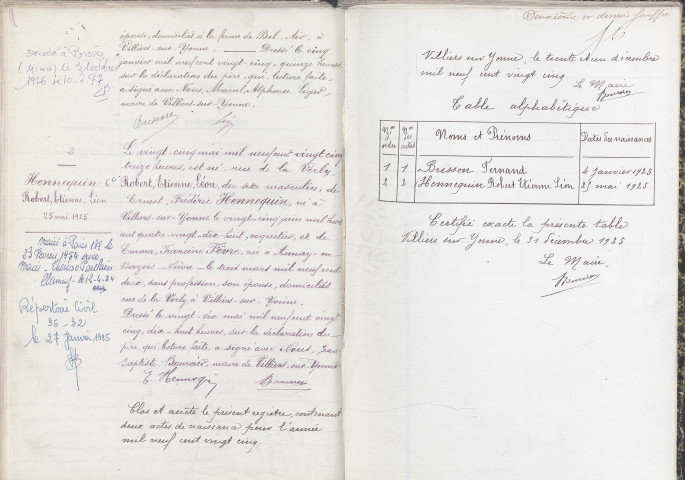 épouse, domiciliés à la ferme de Bel-Air, à
Villiers-sur-Yonne. — Dressé le cinq
janvier mil neuf cent vingt-cinq, quinze heures
sur la déclaration du père, qui, lecture faite,
a signé avec Nous, Marcel Alphonse Léger
maire de Villiers-sur-Yonne.
Brisson
le 3 octobre
1976
2
Hennequin
Robert, Etienne, Léon
25 mai 1925
Marié à Paris 18e le
Répertoire Civil
95-32
le 27 janvier 1995
Le vingt-cinq mai mil neuf cent vingt-cinq
treize heures, est né, rue de la Verly
Robert, Etienne, Léon, du sexe masculin, de
Ernest, Frédéric Hennequin, né à
Villiers-sur-Yonne le vingt-cinq juin mil huit
cent quatre-vingt-dix-huit, coquetier, et de
Emma, Francine Fèvre, née à Aunay-en-
Bazois-Nièvre-le trois mars mil neuf cent
deux, sans profession, son épouse, domiciliés
rue de la Verly à Villiers-sur-Yonne.
Dressé le vingt-six mai mil neuf cent vingt
cinq, dix-huit heures, sur la déclaration du
père, qui, lecture faite, a signé avec Nous, Jean
Baptiste Bourcier, maire de Villiers-sur-Yonne
Clos et arrêté le présent registre, contenant
deux actes de naissance pour l'année
mil neuf cent vingt cinq.
Deuxième et dernier feuillet
Villiers sur Yonne, le trente et un décembre
mil neuf cent vingt cinq
Le Maire
Table alphabétique
Nos ordre Nos des actes Noms et Prénoms Dates des naissances
1 1 Brisson Fernand 4 janvier 1925
2 2 Hennequin Robert Etienne Léon 25 mai 1925
Certifié exacte la présente table
Villiers sur Yonne, le 31 décembre 1925
Le Maire,